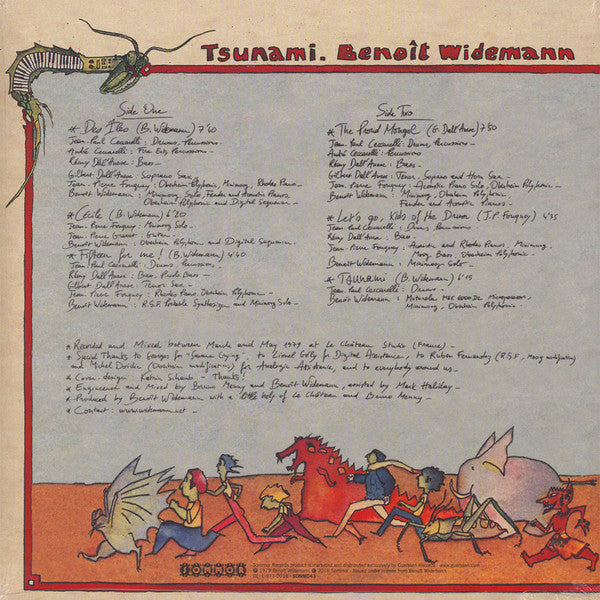 Tsunami. Benoît Widemann
Side One
* Des Iles (B. Widemann) 7'40
Jean-Paul Ceccarelli: Drums, Percussions.
André Ceccarelli: Percussions
Rémy Dall'Anese: Bass -
Gilbert Dall'Anese: Soprano Sax.
Jean-Pierre Fouquey: Oberheim Polyphonic, Minimoog, Rhodes Piano.
Benoît Widemann: Minimoog Solo, Fender and Acoustic Pianos,
Oberheim Polyphonic and Digital Sequencer.
* Cécile (B. Widemann) 6'20
Jean-Pierre Fouquey: Minimoog Solo.
Jean-Pierre: Guitar -
Benoît Widemann: Oberheim Polyphonic and Digital Sequencer.
* Fifteen for me! (B. Widemann) 4'40
Jean-Paul Ceccarelli: Drums, Percussions.
Rémy Dall'Anese: Bass, Piccolo Bass -
Gilbert Dall'Anese: Tenor Sax -
Jean-Pierre Fouquey: Rhodes Piano, Oberheim Polyphonic -
Benoît Widemann: R.S.F. Portable Synthesizer and Minimoog Solo -
Side Two
* The Proud Mongol (G. Dall'Anese) 7'50
Jean-Paul Ceccarelli: Drums, Percussions -
André Ceccarelli: Percussions
Rémy Dall'Anese: Bass -
Gilbert Dall'Anese: Tenor, Soprano and Horn Sax -
Jean-Pierre Fouquey: Acoustic Piano Solo, Oberheim Polyphonic -
Benoît Widemann: Minimoog, Oberheim Polyphonic,
Fender and Acoustic Pianos -
* Let's go, Kids of the Drum (J.P. Fouquey) 4'35
Jean-Paul Ceccarelli: Drums, Percussions
Rémy Dall'Anese: Bass -
Jean-Pierre Fouquey: Acoustic and Rhodes Pianos, Minimoog,
Moog Bass, Oberheim Polyphonic -
Benoît Widemann: Minimoog Solo -
* Tsunami (B. Widemann) 6'15
Jean-Paul Ceccarelli: Drums -
Benoît Widemann:
Minimoog, Oberheim Polyphonic -
* Recorded and Mixed between March and May 1979 at Le Château Studio (France) -
* Special Thanks to Georges for "Semere Crying", to Lionel for Digital Assistance, to Ruben Fernandez (R.S.F., Moog modification)
and Michel (Oberheim modification) for Analogic Assistance, and to everybody around us -
* Cover design: Katrin - Thanks!
* Engineered and Mixed by Bruno Menny and Benoît Widemann, assisted by Mark Haliday -
* Produced by Benoît Widemann with a little help of Le Château and Bruno Menny -
* Contact: www.widemann.net -
SOMMOR
Sommor Records product is marketed and distributed exclusively by Guerssen Records - www.guerssen.com
℗ 1979 Benoît Widemann © 2018 Sommor - Issued under license from Benoît Widemann
SOMM043